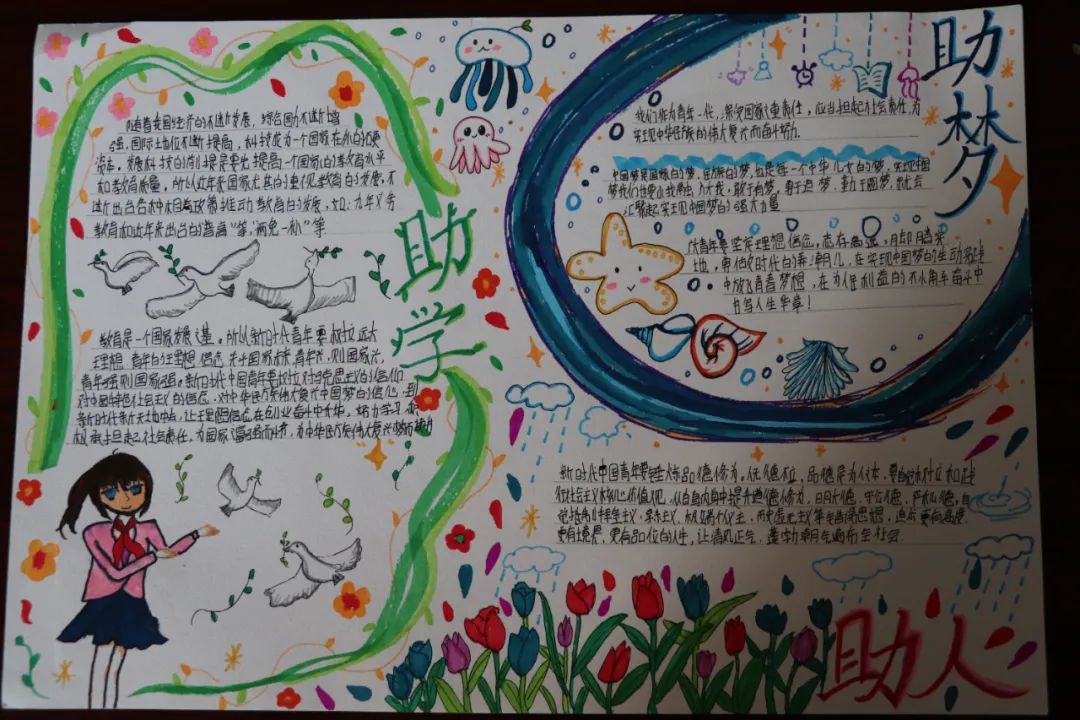 随着我国经济的不断发展，综合国力不断增
强，国际地位不断提高，科技成为一个国家存在的硬
资本。发展科技的前提是要先提高一个国家的教育水平
和教育质量。所以近年来国家尤其的重视教育的发展，不
断出台各种相关政策推动教育的发展，如：九年义务
教育和近年来出台的普高"等"两免一补"等
助学
教育是一个国家发展之基。所以新时代青年要树立远大
理想，青年的理想信念关乎国家未来，青年兴，则国家兴，
青年强则国家强。新时代中国青年要树立对马克思主义的信仰
对中国特色社会主义的信念，对中华民族伟大复兴中国梦的信心，到
新时代新天地中去，让理想信念在创业奋斗中升华，努力学习
积极承担起社会责任，为国家富强而，为中华民族伟大复兴
助梦
我们作为青年一代，承受国家之重责任，应当担起社会责任，为
实现中华民族的伟大复兴而奋斗努力。
中国梦是国家的梦，民族的梦，也是每一个中华儿女的梦，实现中国
梦我们也要由我融入大我，敢于有梦，勇于追梦，勤于圆梦，就会
汇聚起实现中国梦的强大力量
广大青年要坚定理想信念，志存高远，脚踏实
地，勇做时代的弄潮儿，在实现中国梦的生动实践
中放飞青春梦想，在为人民利益的不懈奋斗中
书写人生华章！
新时代中国青年要锤炼品德修为。人无德不立，品德是为人之本。要自觉树立和践
行社会主义核心价值观，从自身内省中提升道德修为，明大德、守公德、严私德，自
觉抵制拜金主义、享乐主义、极端个人主义、历史虚无主义等错误思想，追求更有高度、
更有境界、更有品位的人生，让清风正气、蓬勃朝气遍布全社会
助人